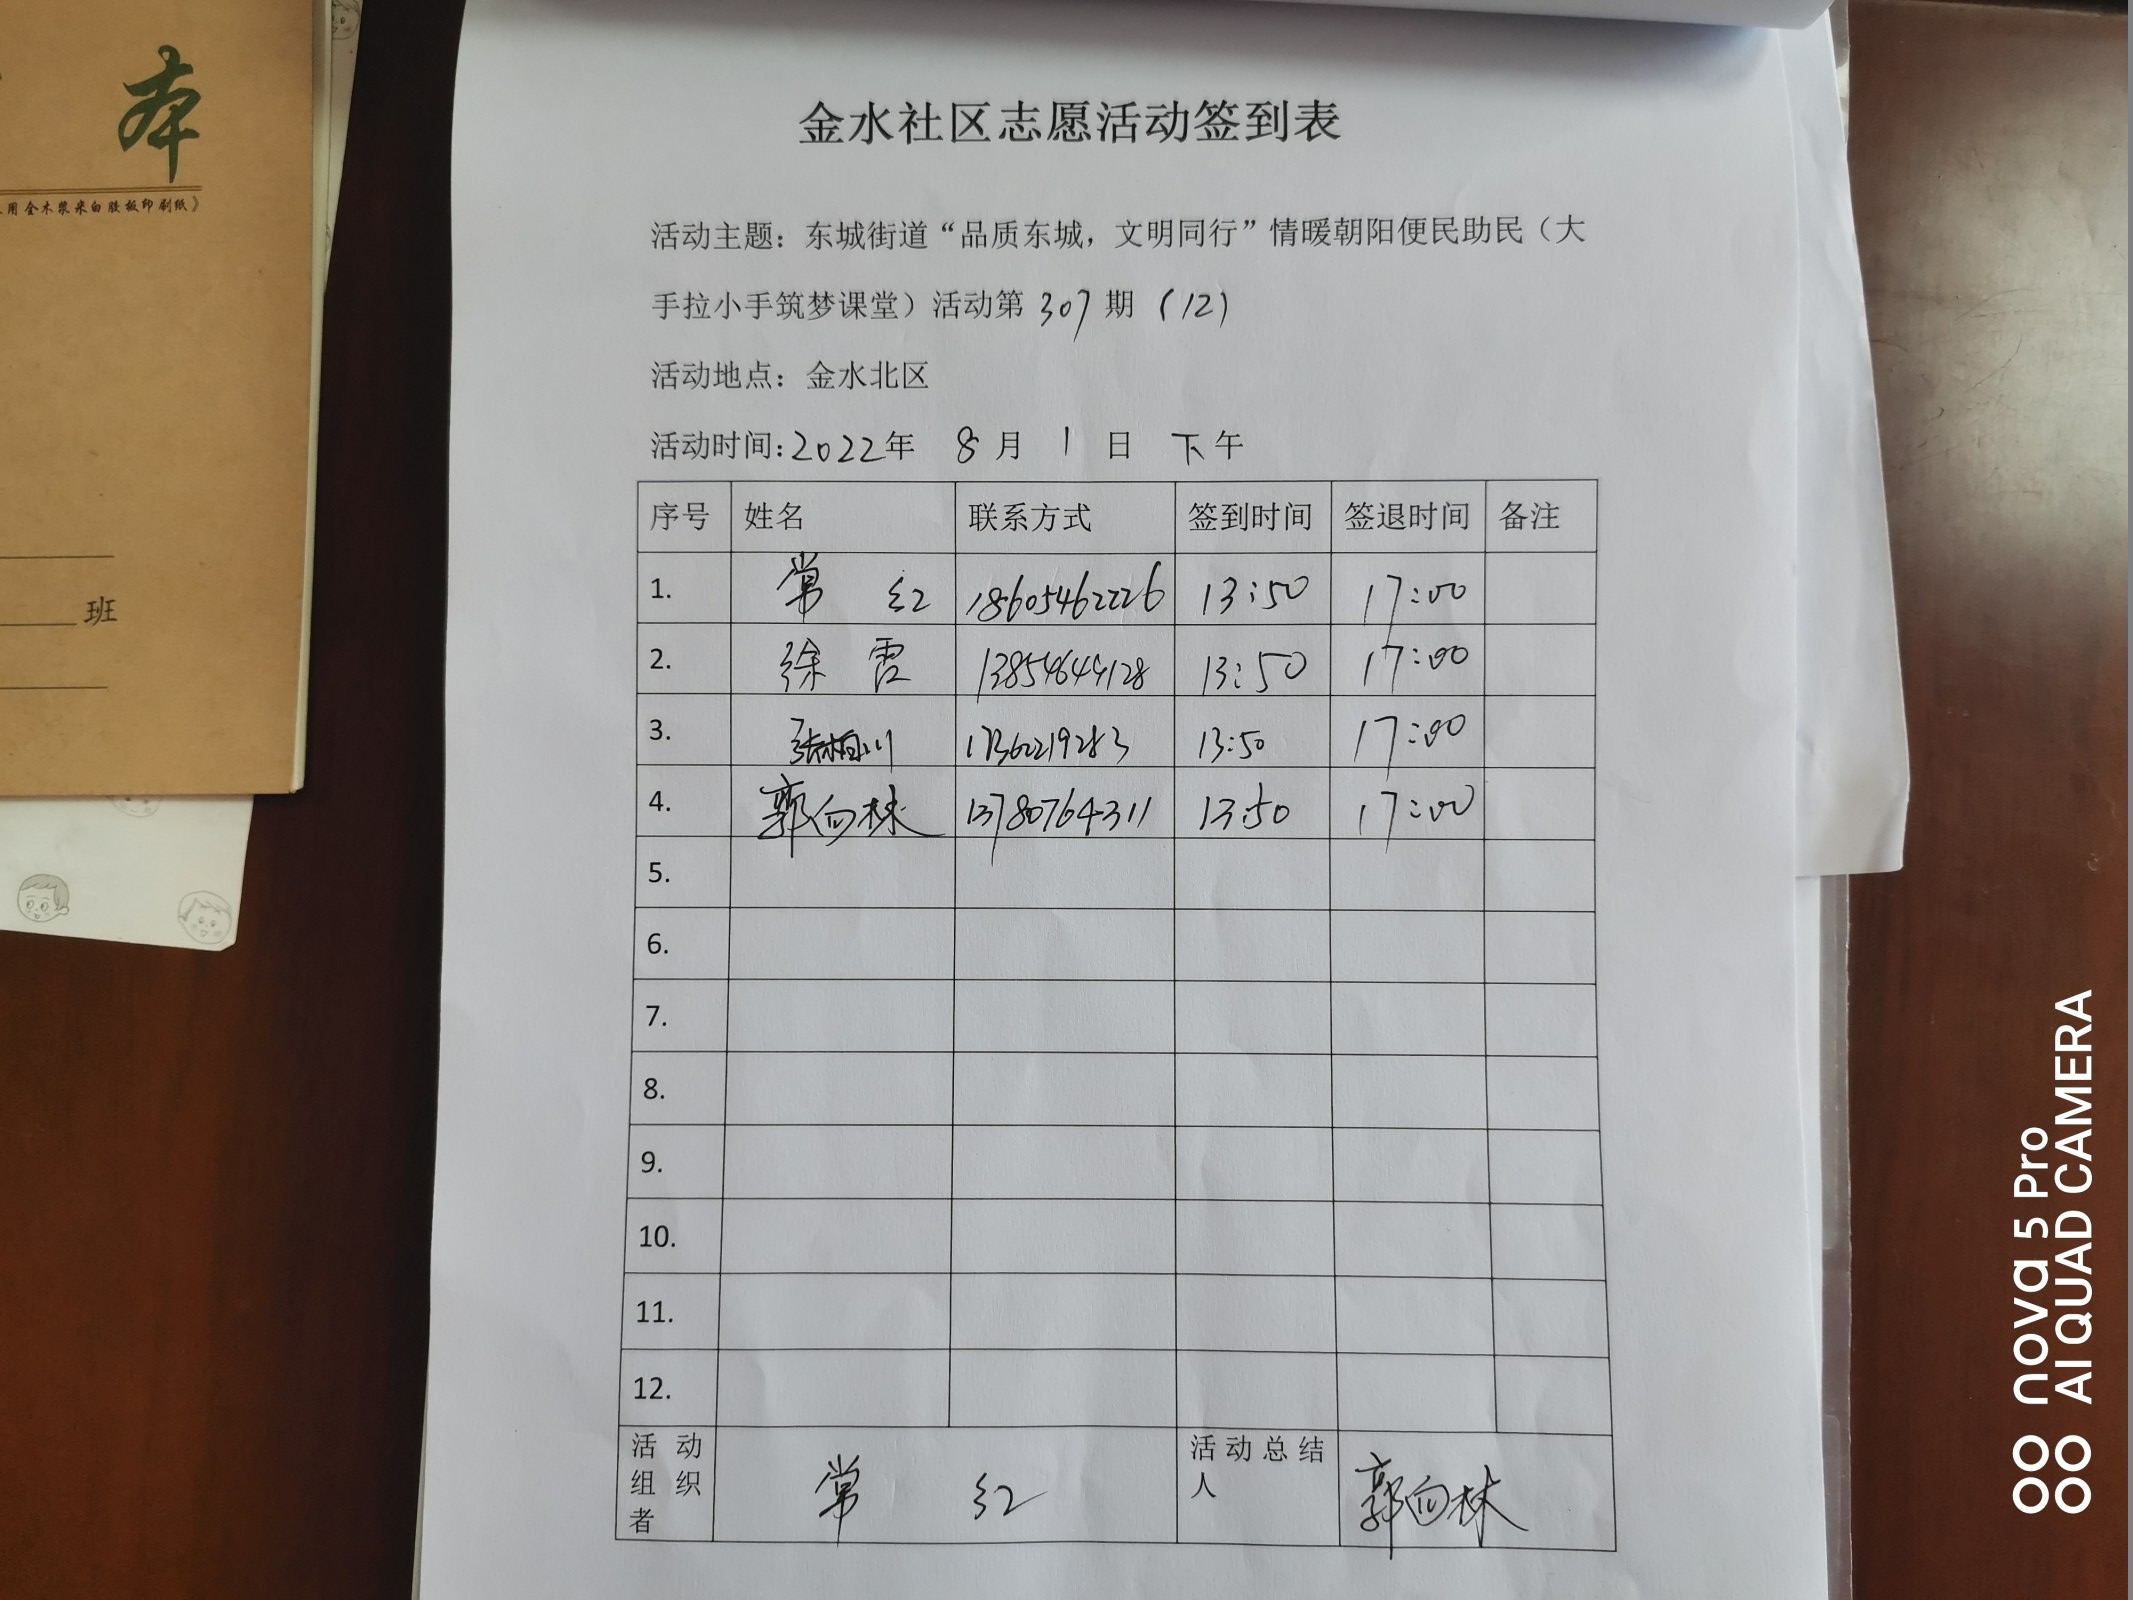 本
用全木浆米白胶板印刷纸》
班
金水社区志愿活动签到表
活动主题：东城街道“品质东城，文明同行”情暖朝阳便民助民（大
手拉小手筑梦课堂）活动第 307 期 (12)
活动地点：金水北区
活动时间：2022年 8 月 1 日 下午
序号 姓名 联系方式 签到时间 签退时间 备注
1. 常 红 18605462226 13:50 17:00
2. 徐 霞 13854644128 13:50 17:00
3. 张相川 13:50 17:00
4. 郭向林 13780764311 13:50 17:00
5.
6.
7.
8.
9.
10.
11.
12.
活动组织者 常 红 活动总结人 郭向林
nova 5 Pro
AI QUAD CAMERA